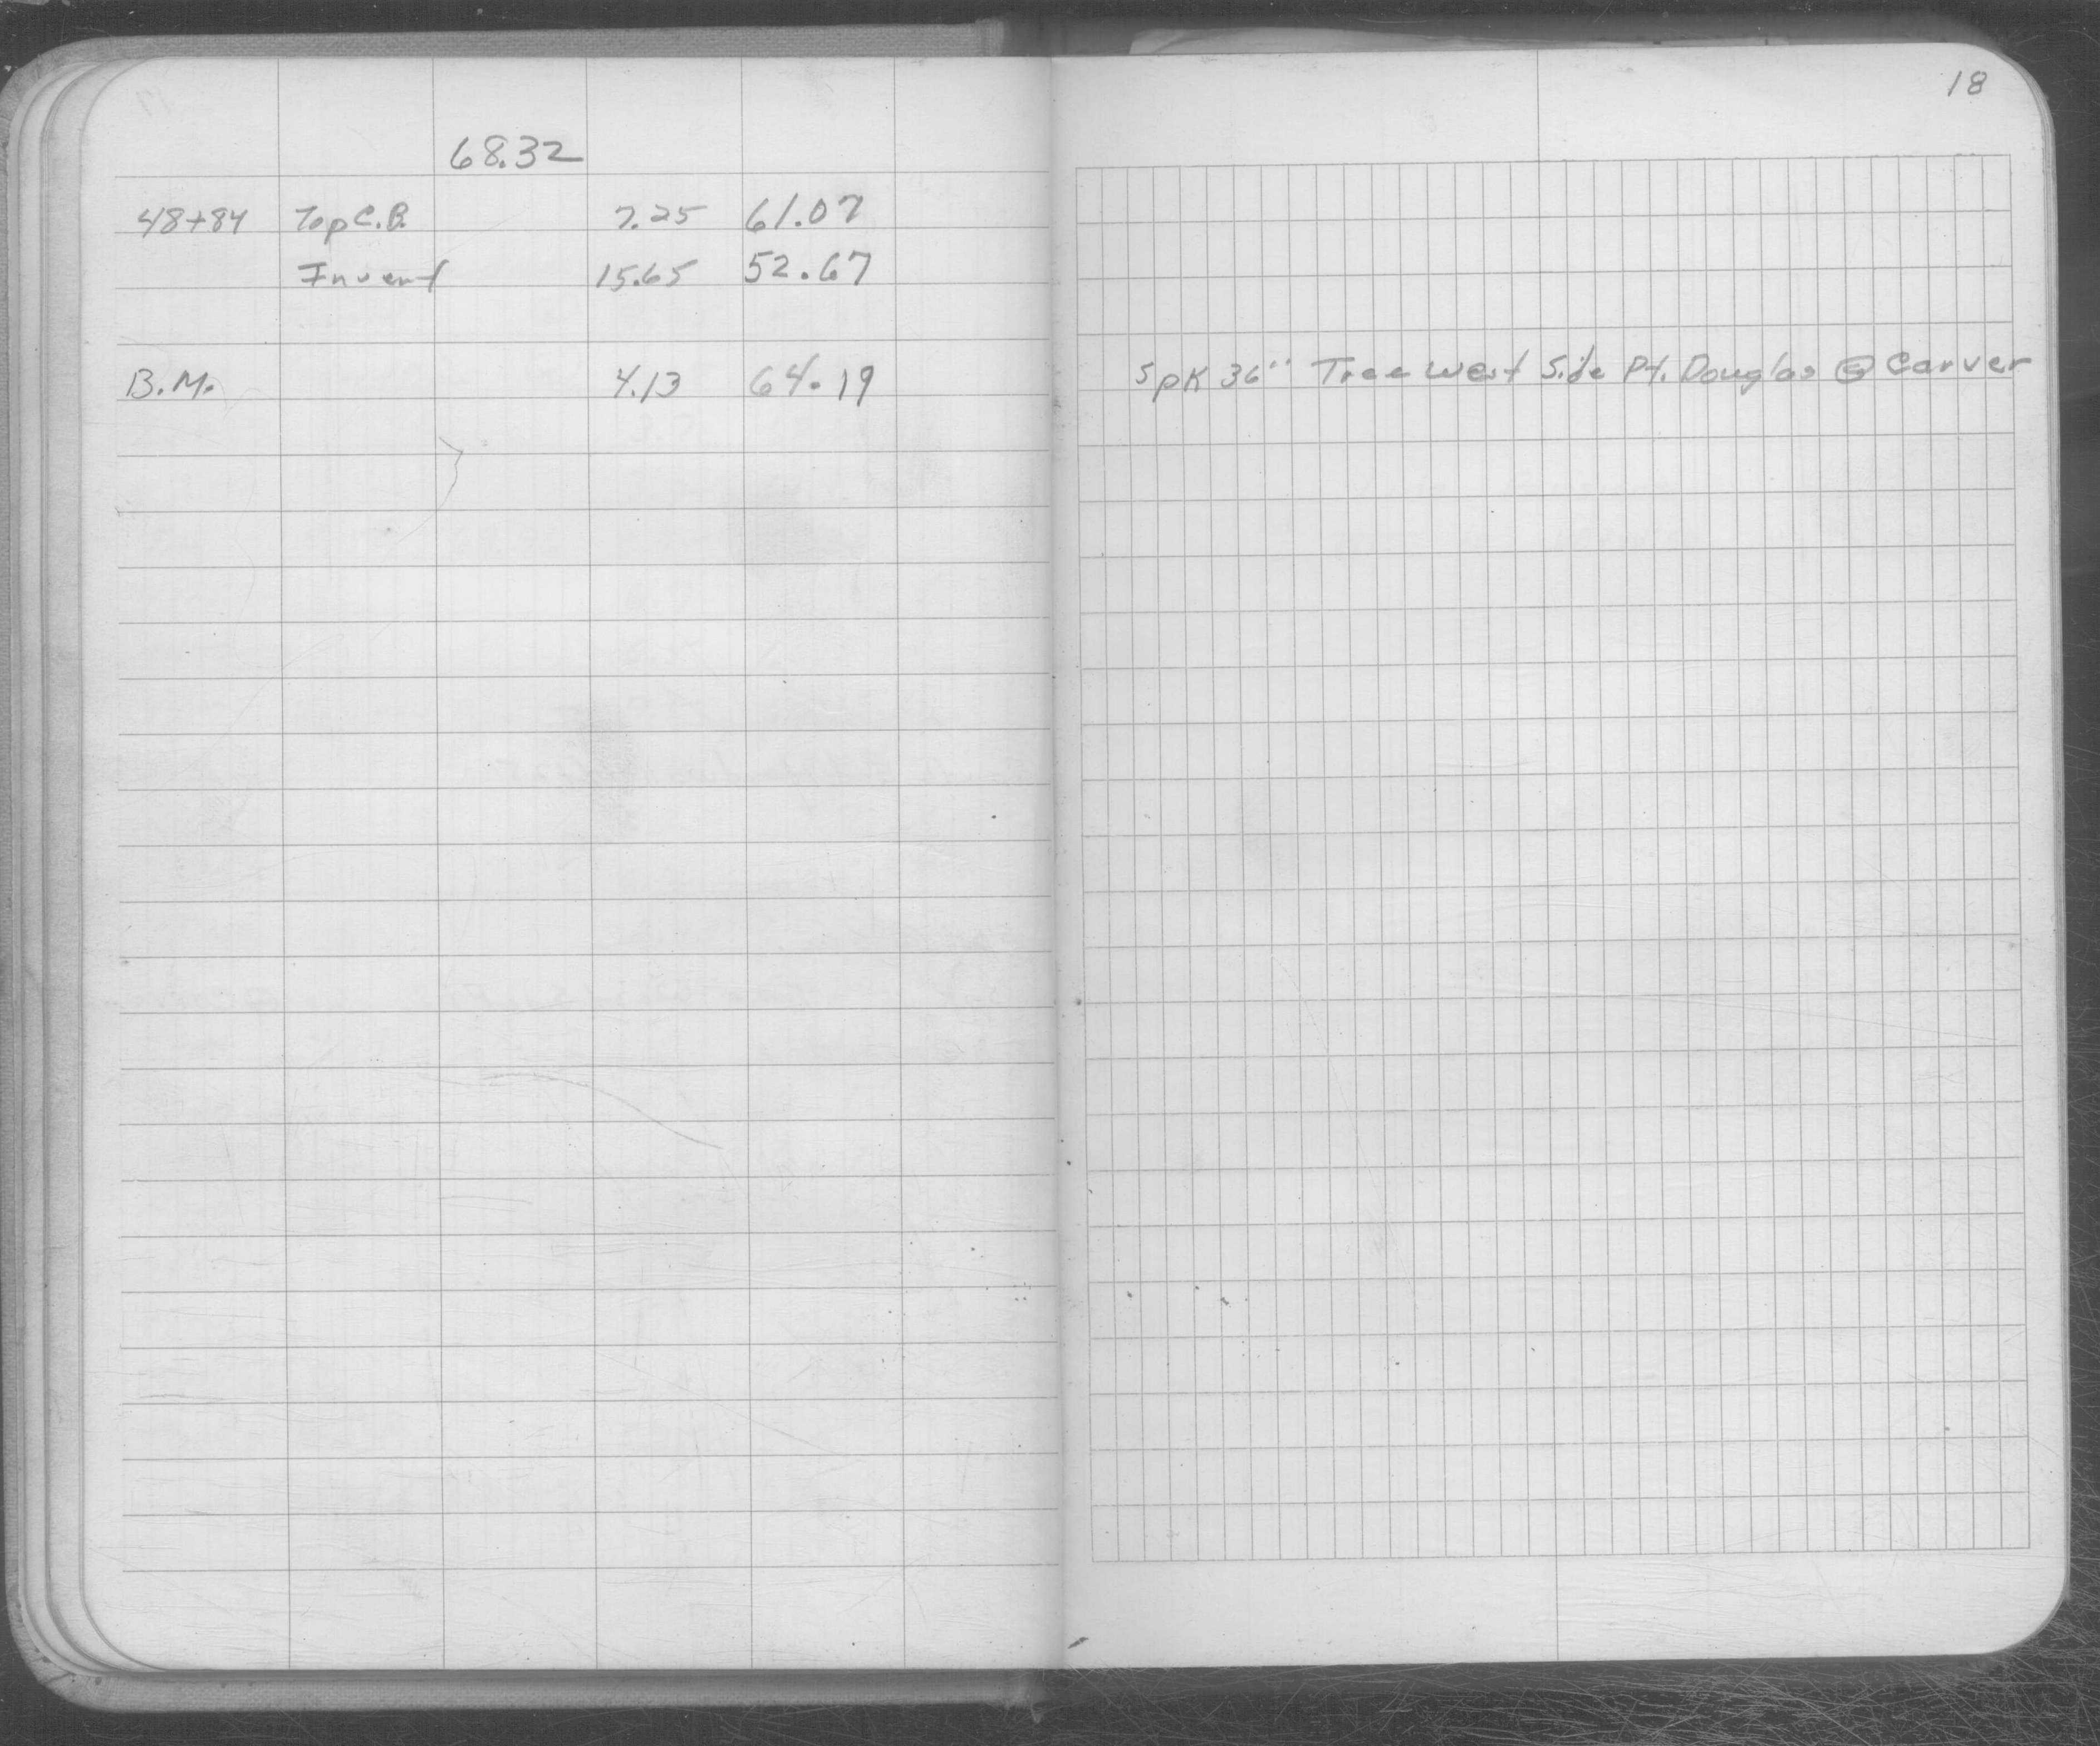 18
68.32
48+84 Top C.B. 7.25 61.07
Invert 15.65 52.67
B.M. 4.13 64.19 Spk 36" Tree West Side Pt. Douglas @ Carver